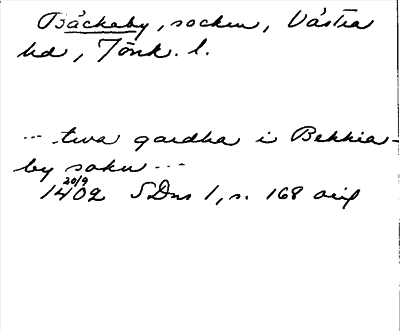 Bäckaby, socken, Västra
hd, Jönk. l.
... twa gardha i Bekkia-
by sokn ...
20/9
1402 SDns 1, s. 168 orig